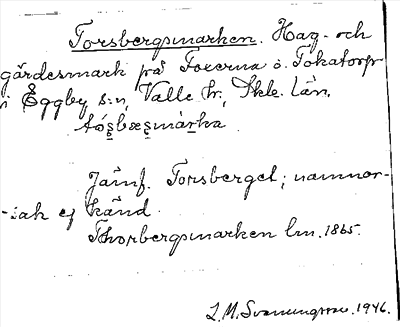 Torsbergsmarken. Hag- och
gärdesmark på Torerna o. Tokatorp
i Eggby s:n, Valle hr, Skbl. län.
Jämf. Torsberget; namnor-
-sak ej känd.
Thorbergsmarken lm. 1865.
L.M. Svanungsson. 1946.